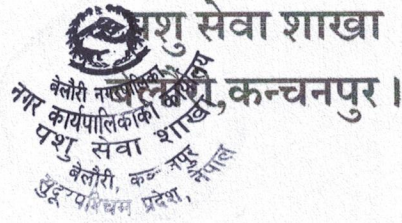 पशु सेवा शाखा
बेलौरी,कन्चनपुर ।
बेलौरी नगरपालिका
नगर कार्यपालिकाको कार्यालय
पशु सेवा शाखा
बेलौरी, कञ्चनपुर
सुदूरपश्चिम प्रदेश, नेपाल